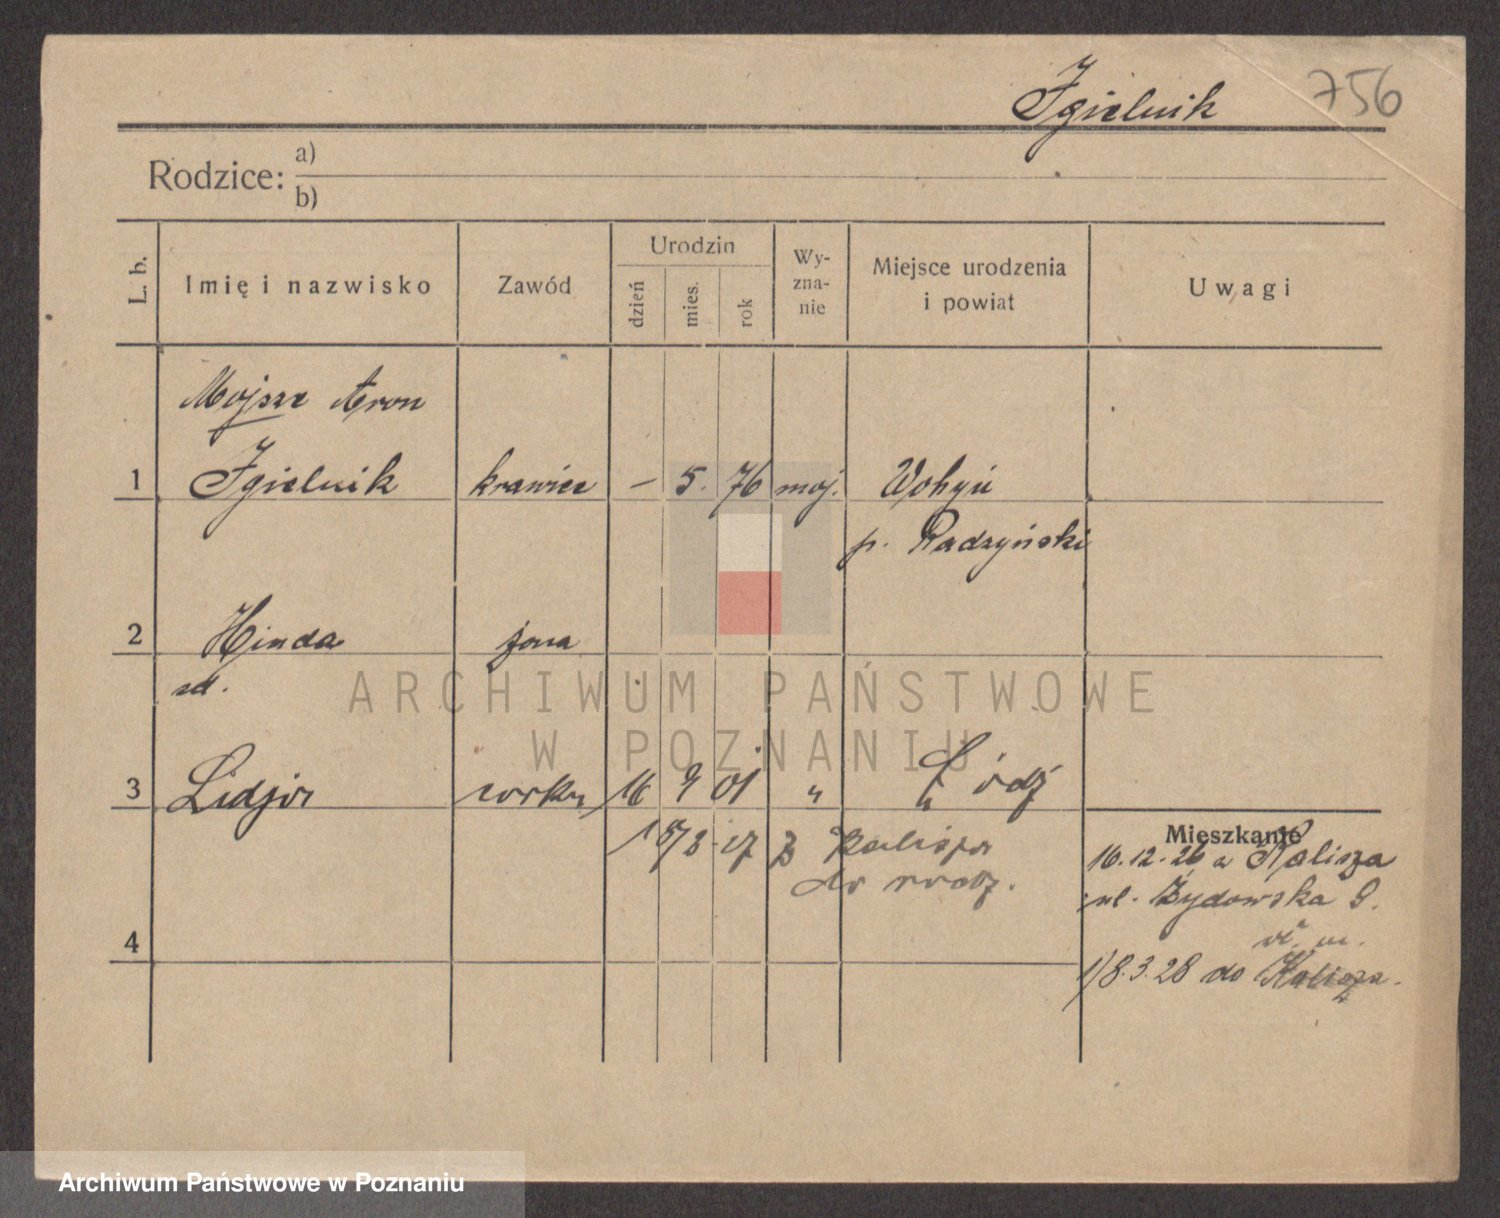 Igielnik 756
Rodzice: a)
b)
L. b. Imię i nazwisko Zawód Urodzin dzień mies. rok Wy-zna-nie Miejsce urodzenia i powiat Uwagi
Mojsze Aron
1 Igielnik krawiec – 5. 76 moj. Wohyń
p. Radzyński
2 Hinda żona
ARCHIWUM PAŃSTWOWE
W POZNANIU
3 Lidja córka 16 9 01 " Łódź
Mieszkanie
z Kalisza
16.12.26 z Kalisza
do rodz.
ul. Żydowska 9.
4
1/8.3.28 do Kalisza.
Archiwum Państwowe w Poznaniu